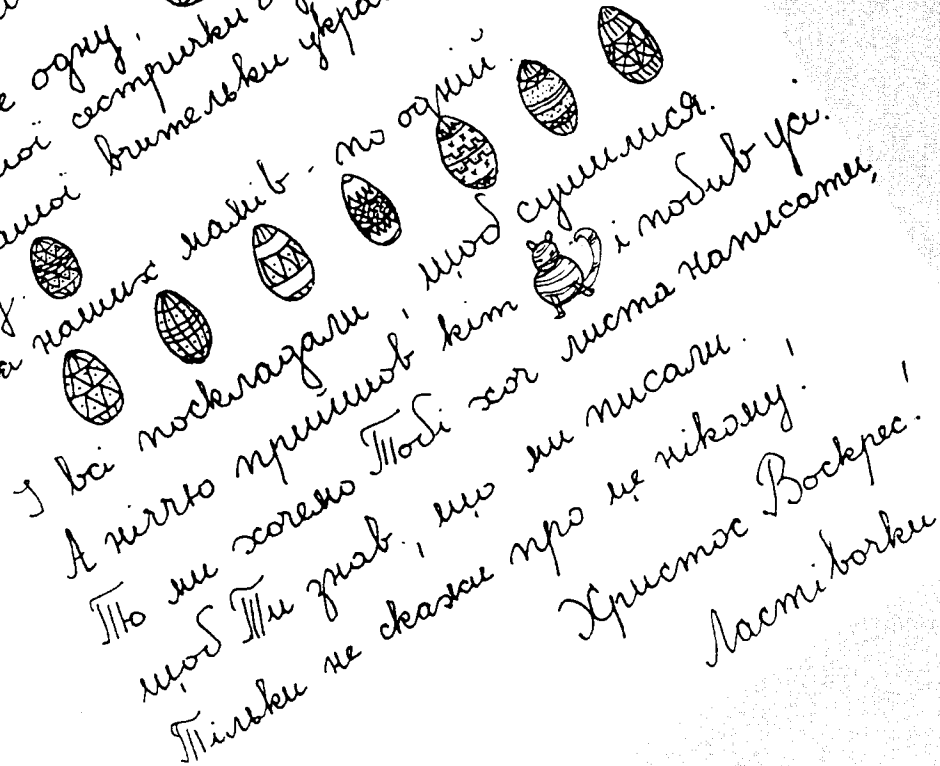 одну.
сестрички
вчительки укра
наших мамів - по одній.
І всі поскладали, щоб сушилися.
А ніччю прийшов кіт і побив усі.
То ми хочемо Тобі хоч листа написати,
щоб Ти знав, що ми писали.
Тільки не скажи про це нікому!
Христос Воскрес!
Ластівочки